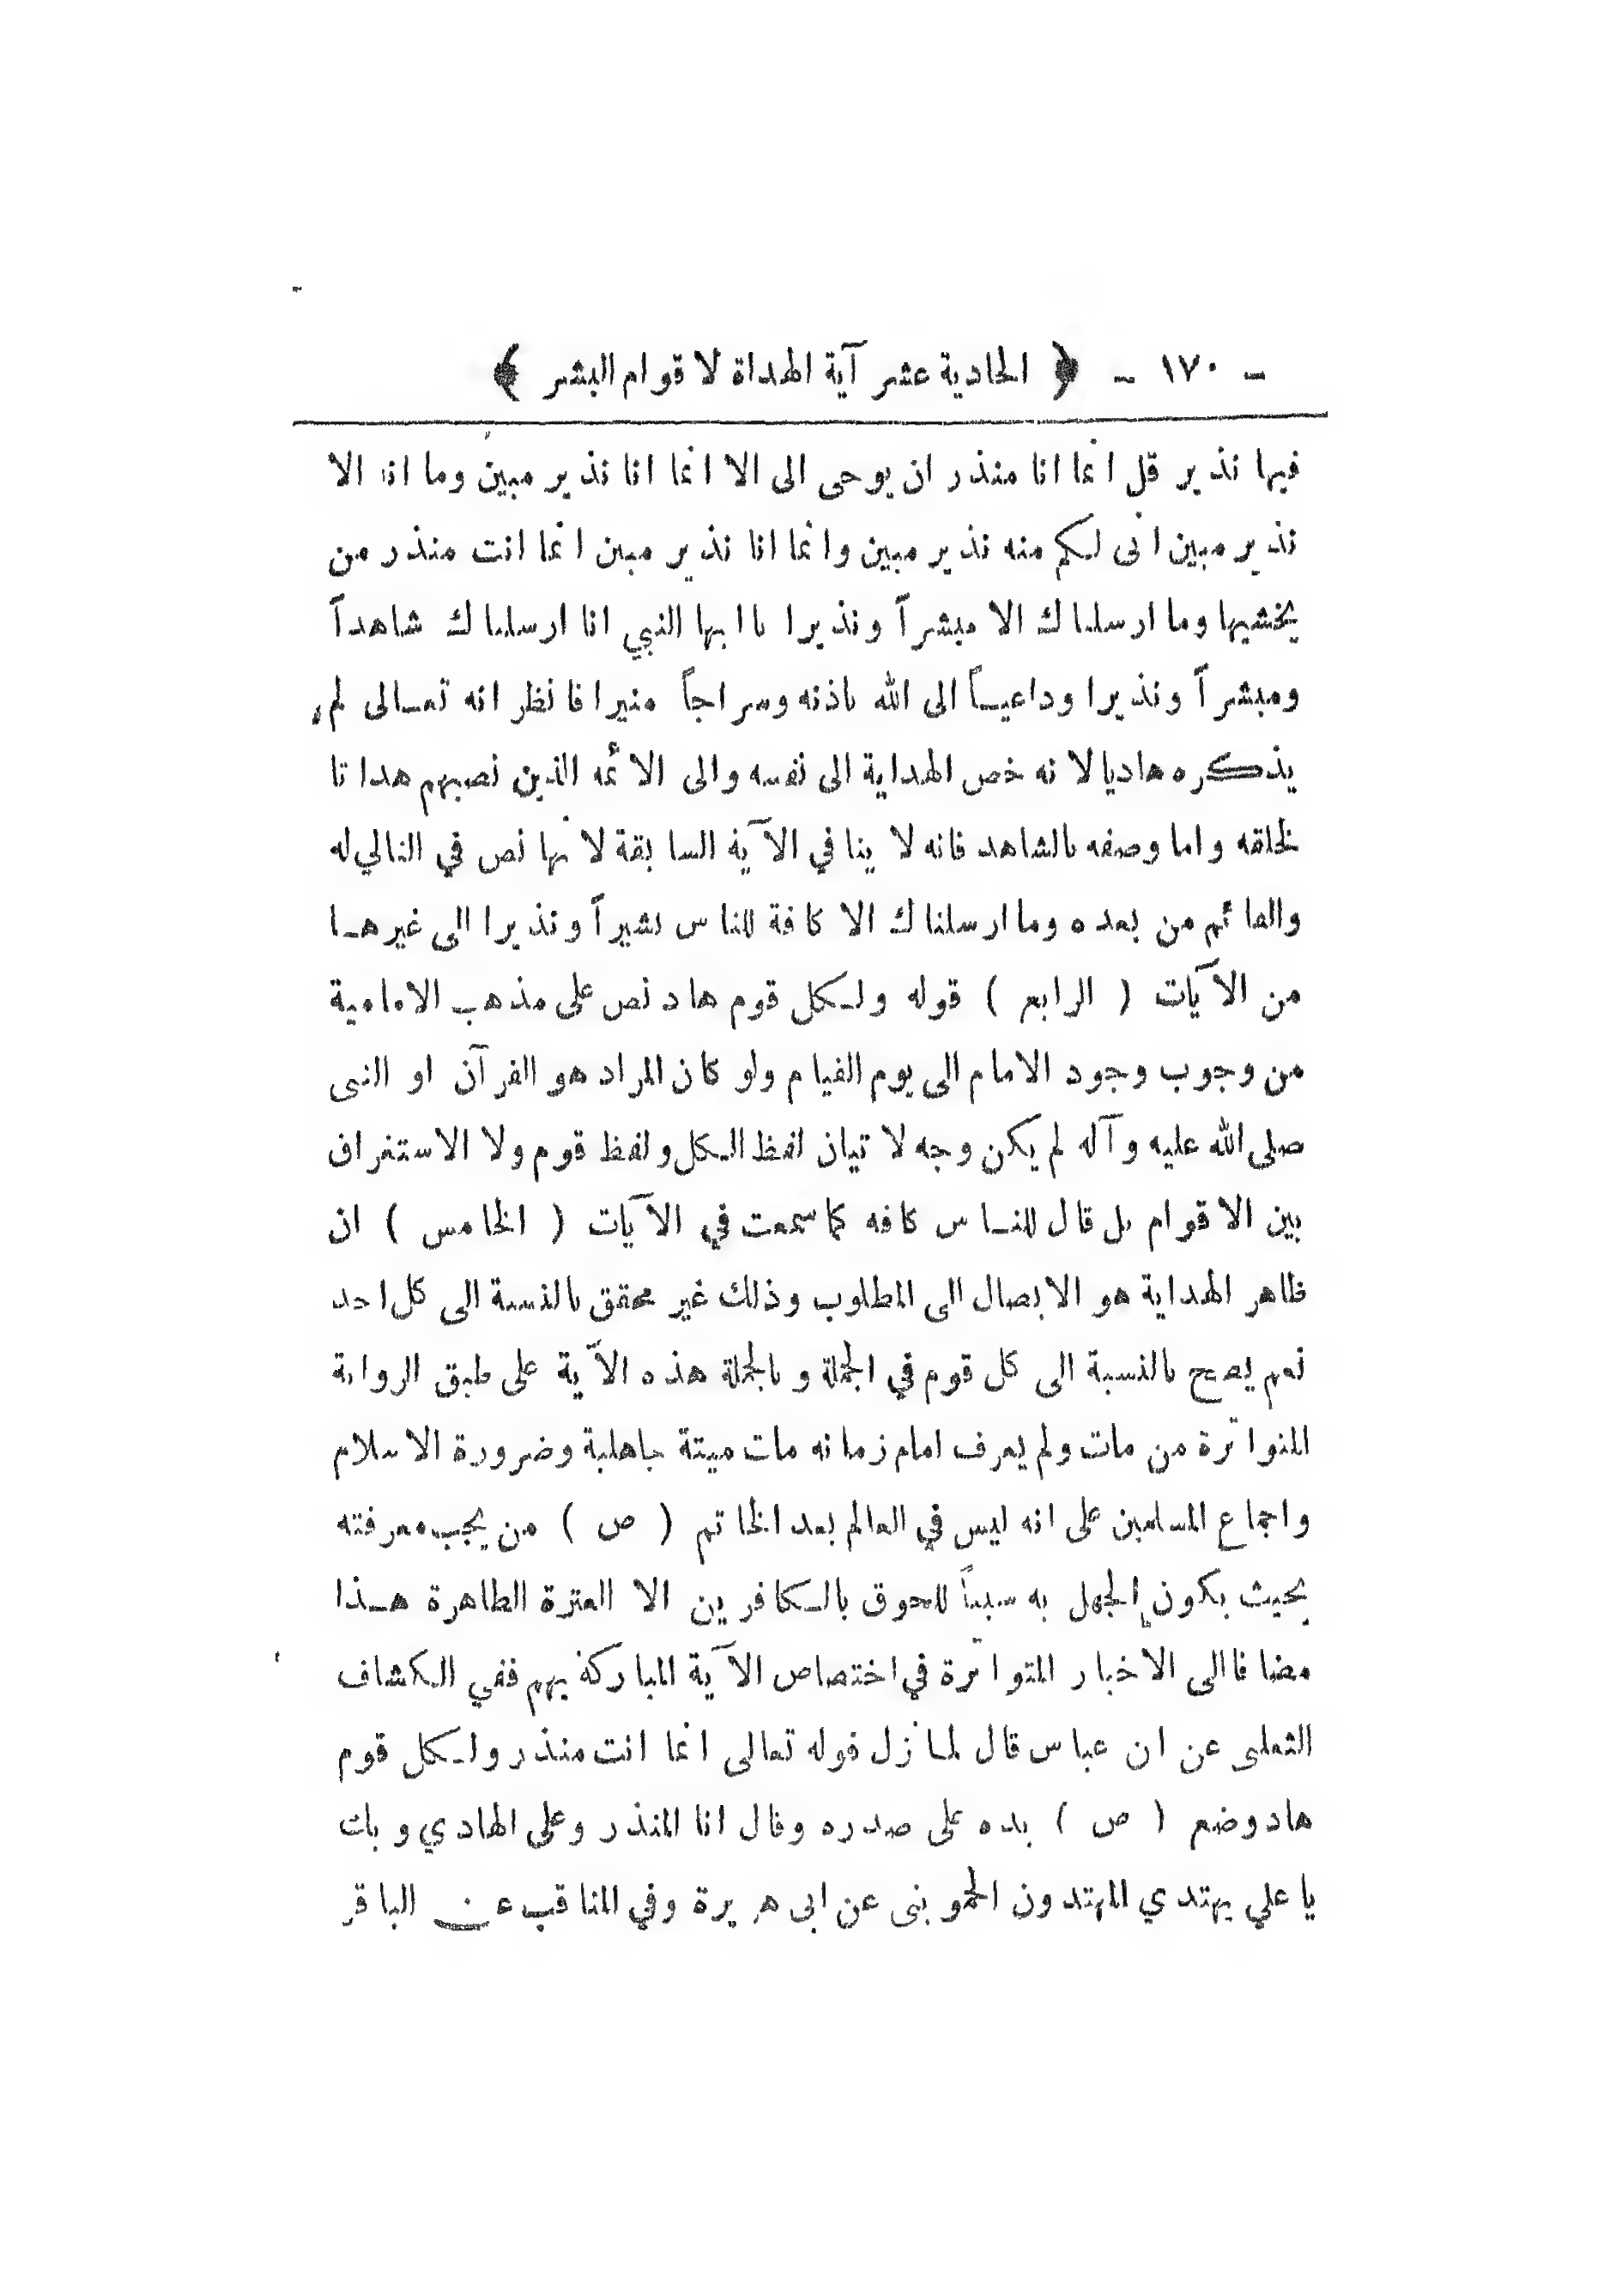 - ١٧٠ - ﴿ الحادية عشر آية الهداة لاقوام البشر ﴾
فيها نذير قل انما انا منذر ان يوحى الى الا انما انا نذير مبين وما انا الا
نذير مبين انى لكم منه نذير مبين وانما انا نذير مبين انما انت منذر من
يخشيها وما ارسلناك الا مبشراً ونذيرا يا ايها النبي انا ارسلناك شاهداً
ومبشراً ونذيرا وداعياً الى الله باذنه وسراجاً منيرا فانظر انه تعالى لم
يذكره هاديا لانه خص الهداية الى نفسه والى الائمه الذين نصبهم هداتا
لخلقه واما وصفه بالشاهد فانه لا ينافي الآية السابقة لانها نص في التالي له
والقائم من بعده وما ارسلناك الا كافة للناس بشيراً ونذيرا الى غيرها
من الآيات ( الرابع ) قوله ولكل قوم هاد نص على مذهب الامامية
من وجوب وجود الامام الى يوم القيام ولو كان المراد هو القرآن او النبى
صلى الله عليه وآله لم يكن وجه لاتيان لفظ الكل ولفظ قوم ولا الاستغراق
بين الاقوام بل قال للناس كافه كما سمعت في الآيات ( الخامس ) ان
ظاهر الهداية هو الايصال الى المطلوب وذلك غير محقق بالنسبة الى كل احد
نعم يصح بالنسبة الى كل قوم في الجملة وبالجملة هذه الآية على طبق الرواية
المتواترة من مات ولم يعرف امام زمانه مات ميتة جاهلية وضرورة الاسلام
واجماع المسلمين على انه ليس في العالم بعد الخاتم ( ص ) من يجب معرفته
بحيث يكون الجهل به سبباً للحوق بالكافرين الا العترة الطاهرة هذا
مضافا الى الاخبار المتواترة في اختصاص الآية المباركة بهم ففي الكشاف
الثعلبى عن ابن عباس قال لما نزل قوله تعالى انما انت منذر ولكل قوم
هاد وضع ( ص ) يده على صدره وقال انا المنذر وعلى الهادي وبك
يا علي يهتدي المهتدون الحموينى عن ابى هريرة وفي المناقب عن الباقر